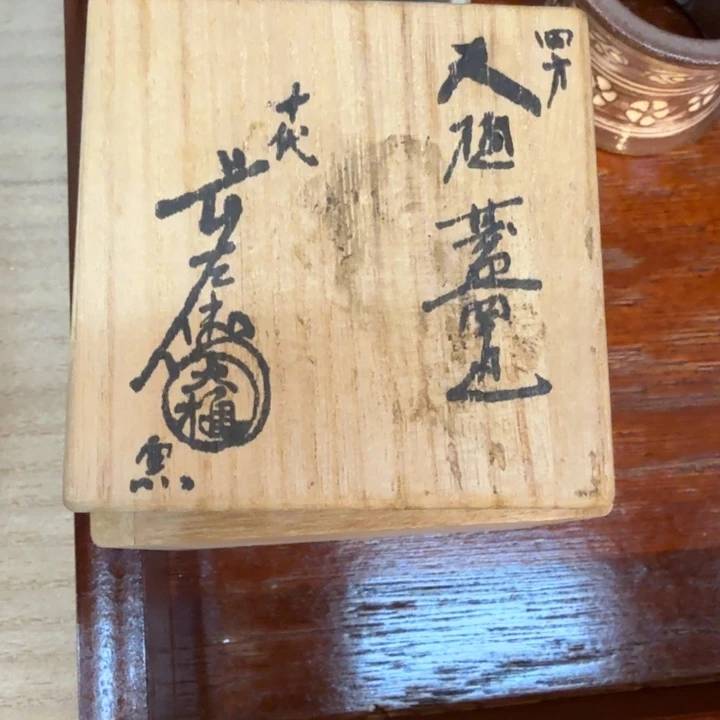 四方
大樋 蓋置
十代
長左衛門
大樋
窯